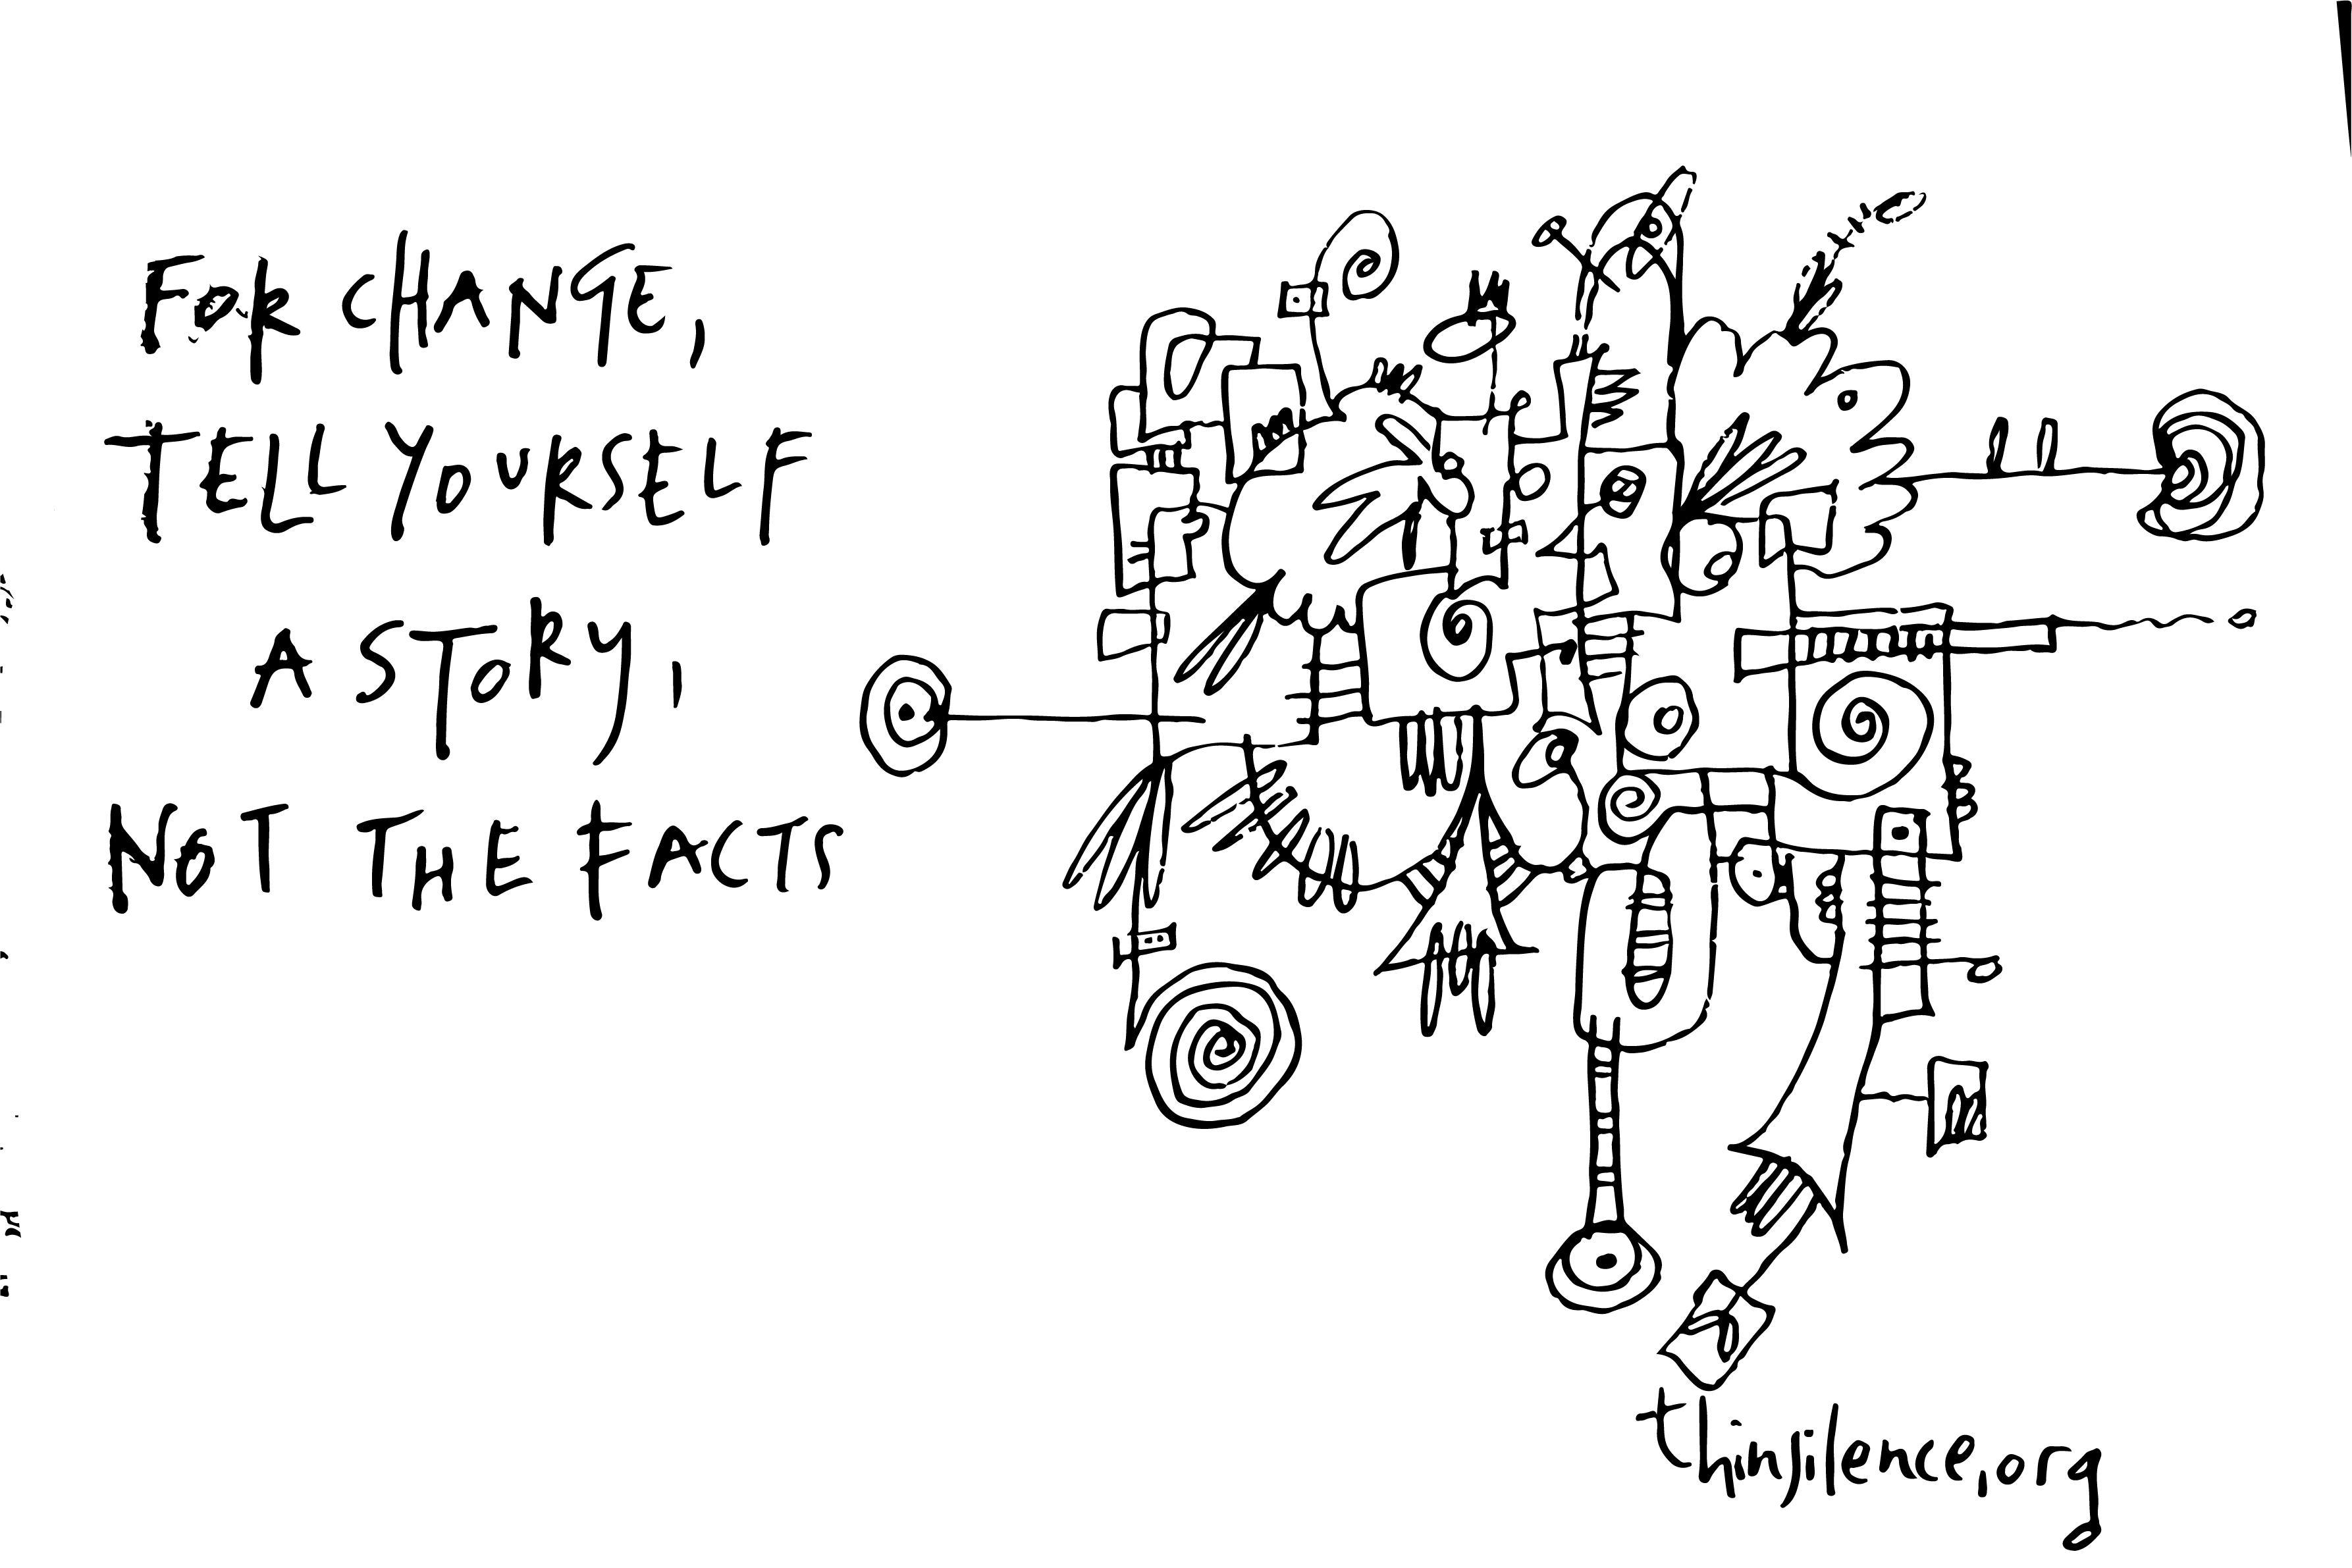 FOR CHANGE,
TELL YOURSELF
A STORY,
NOT THE FACTS
thinsilence.org